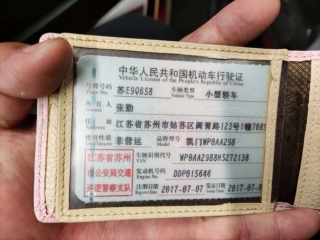 中华人民共和国机动车行驶证
Vehicle License of the People's Republic of China
号牌号码 苏E9Q858 车辆类型 小型轿车
Plate No. Vehicle Type
所有人 张勤
住址 江苏省苏州市姑苏区阊胥路123号1幢
使用性质 非营运 品牌型号 凯门WP0AA298
江苏省苏州 车辆识别代号 WP0AA2988HS272138
VIN
市公安局交通 发动机号码 DDP015646
Engine No.
巡逻警察支队 注册日期 2017-07-07 发证日期 2017-07-07